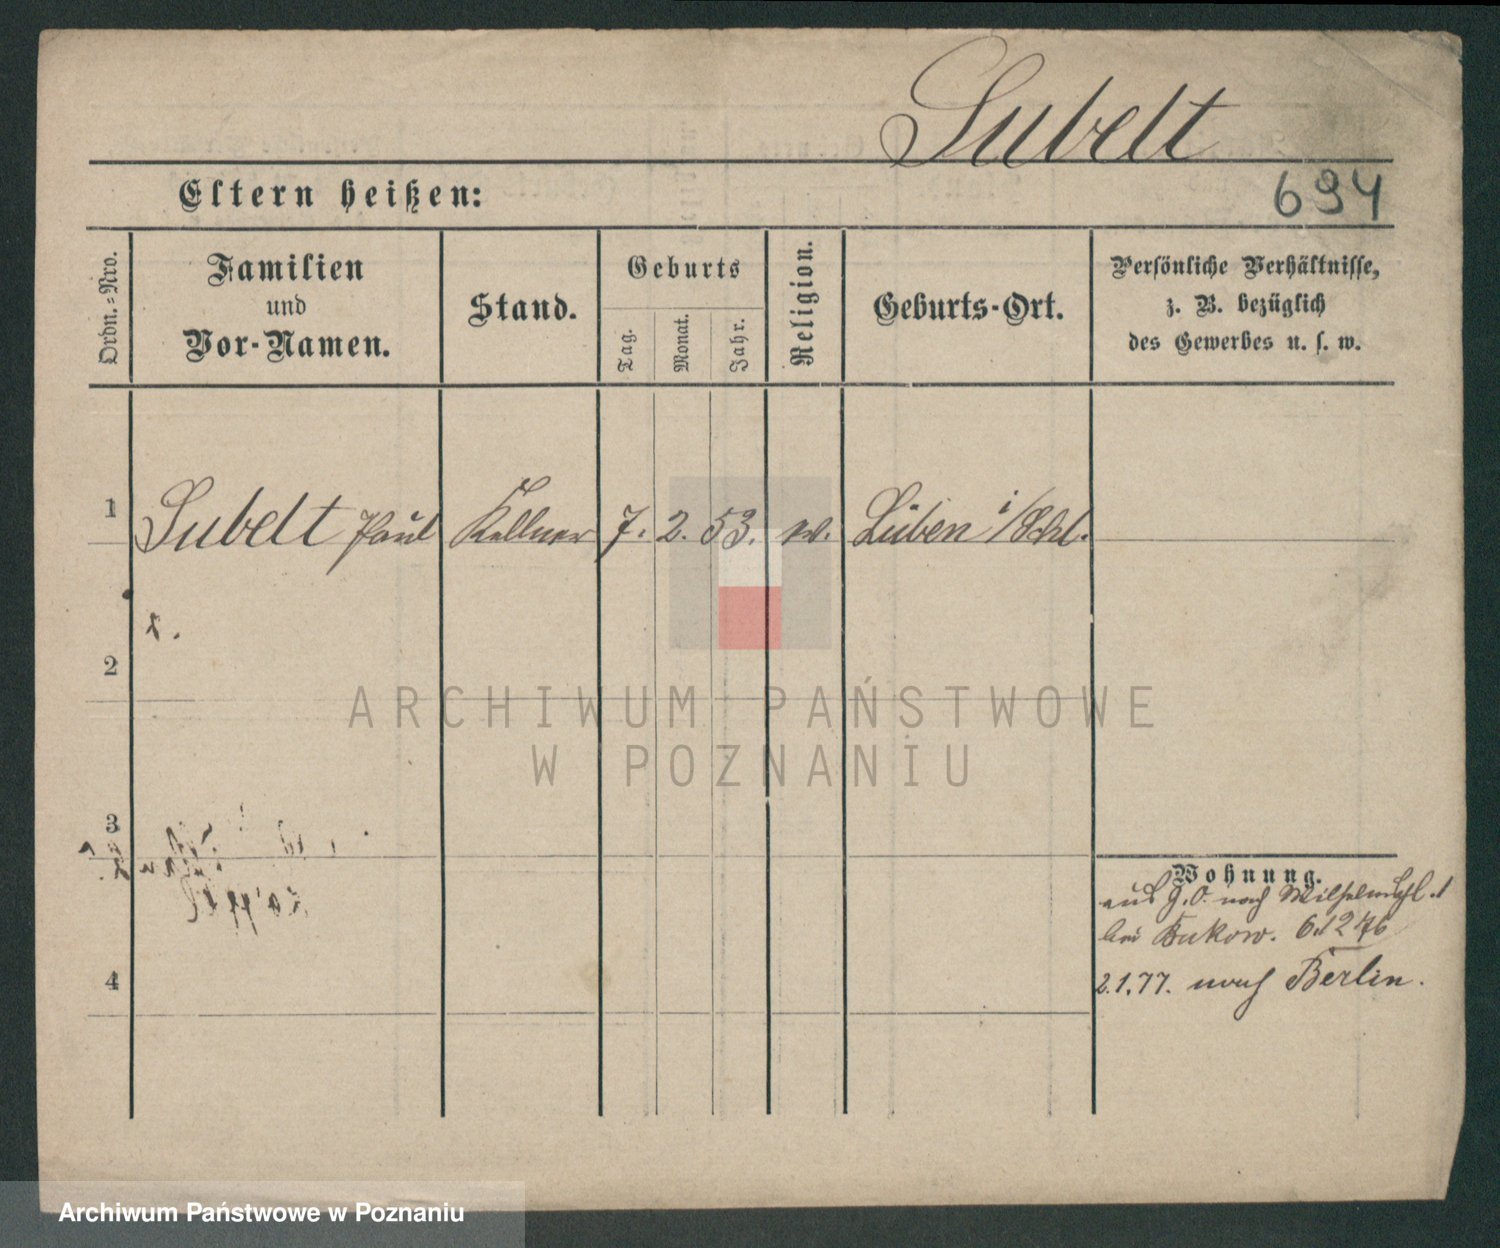 Subelt
694
Eltern heißen:
Ordn.=Nro.
Familien
und
Vor-Namen.
Stand.
Geburts
Tag.
Monat.
Jahr.
Religion.
Geburts-Ort.
Persönliche Verhältnisse,
z. B. bezüglich
des Gewerbes u. s. w.
1 Subelt Paul Kellner 7. 2. 53. ev. Lüben i/Schl.
2
ARCHIWUM PAŃSTWOWE
W POZNANIU
3
Wohnung.
aus G.O. nach Wilhelmspl. 1
bei Bukow. 6.12 76
4
2.1.77. nach Berlin.
Archiwum Państwowe w Poznaniu